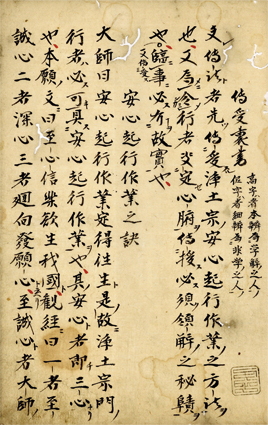 傳受裏書
高字者本辨為學解之人
低字者細辨為非學之人
文傳訣者先傳受淨土宗安心起行作業之方訣
也又為令行者安定心腑傳授必須領解之秘賾
也臨事必有故實也
安心起行作業之訣
大師曰安心起行作業定得往生是故淨土宗門
行者必可具安心起行作業也其安心者即三心
也本願文曰至心信樂欲生我國觀經曰一者至
誠心二者深心三者廻向發願心至誠心者大師